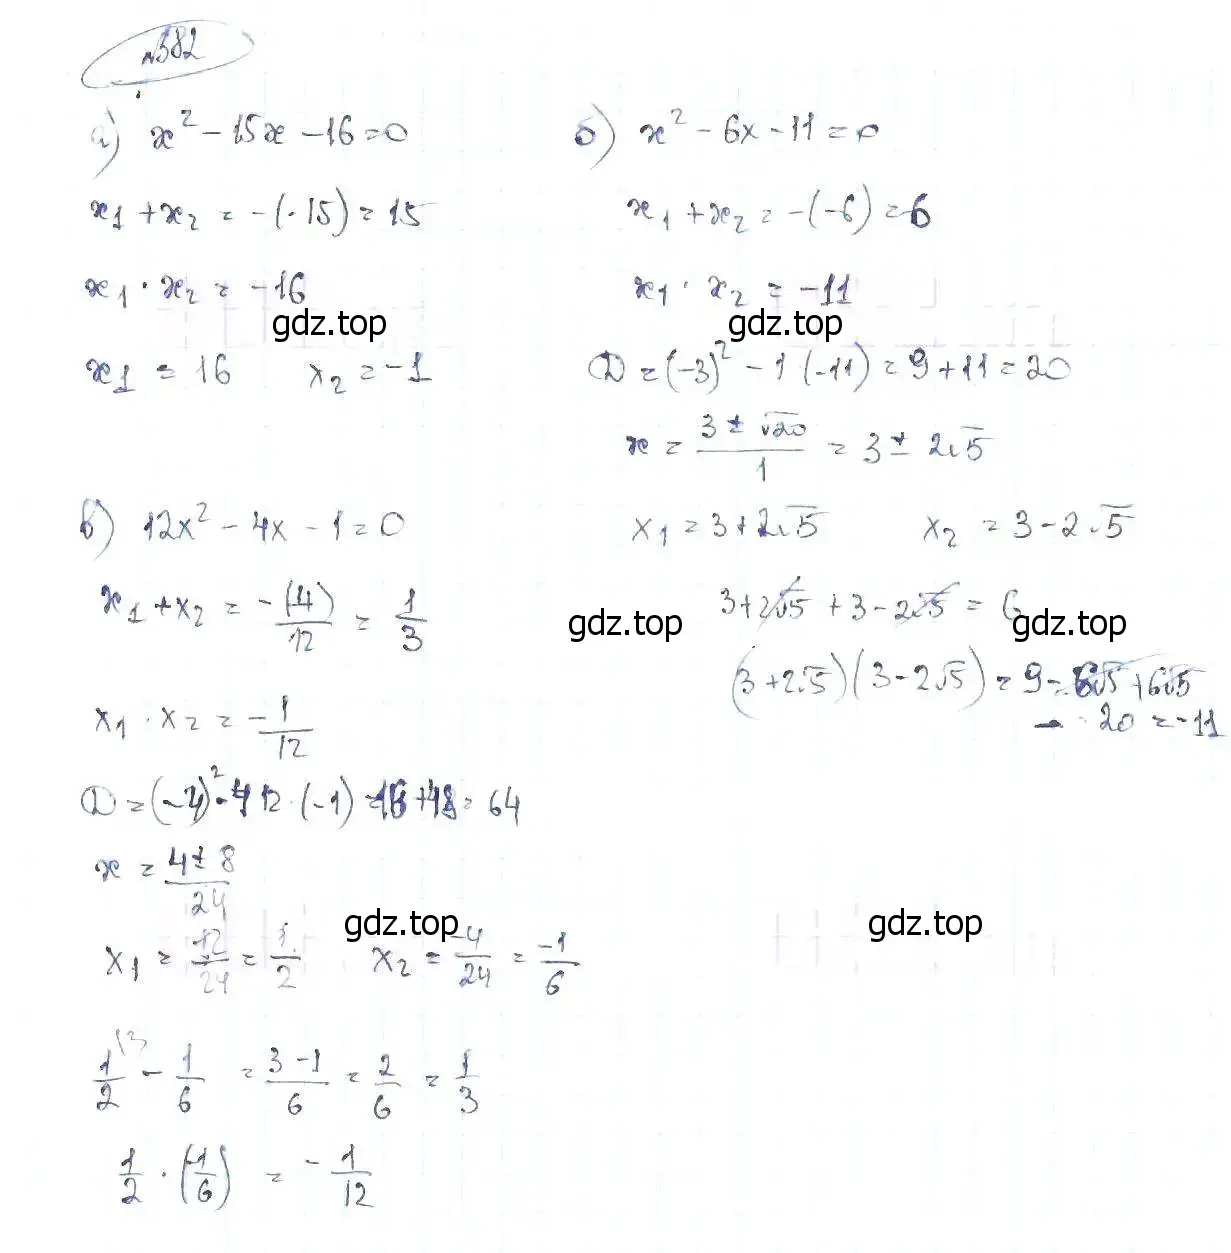 №382
а) x² - 15x - 16 = 0
x₁ + x₂ = -(-15) = 15
x₁ · x₂ = -16
gdz.top
x₁ = 16 x₂ = -1
б) x² - 6x - 11 = 0
x₁ + x₂ = -(-6) = 6
x₁ · x₂ = -11
gdz.top
D = (-3)² - 1 (-11) = 9 + 11 = 20
x = (3 ± √20)/1 = 3 ± 2√5
x₁ = 3 + 2√5 x₂ = 3 - 2√5
3 + 2√5 + 3 - 2√5 = 6
gdz.top gdz.top
(3 + 2√5)(3 - 2√5) = 9 - 6√5 + 6√5
- 20 = -11
в) 12x² - 4x - 1 = 0
x₁ + x₂ = -(-4)/12 = 1/3
x₁ · x₂ = -1/12
D = (-4)² - 4 · 12 · (-1) = 16 + 48 = 64
x = (4 ± 8)/24
gdz.top gdz.top
x₁ = 12/24 = 1/2 x₂ = -4/24 = -1/6
1/2 - 1/6 = (3 - 1)/6 = 2/6 = 1/3
1/2 · (-1/6) = -1/12